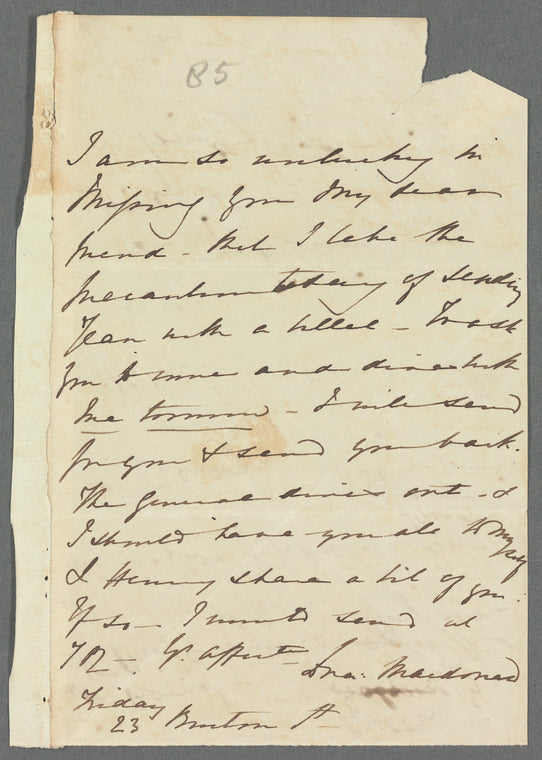 B5
I am so unlucky in
Missing you My dear
friend - But I take the
precaution today of sending
Jean with a billet - To ask
you to come and dine with
me tomorrow - I will send
for you & send you back.
The General dines out - &
I should have you all to myself
& Henry share a bit of you.
If so - I would send at
Yr. affect
Macdonald
Friday
23 Bruton St